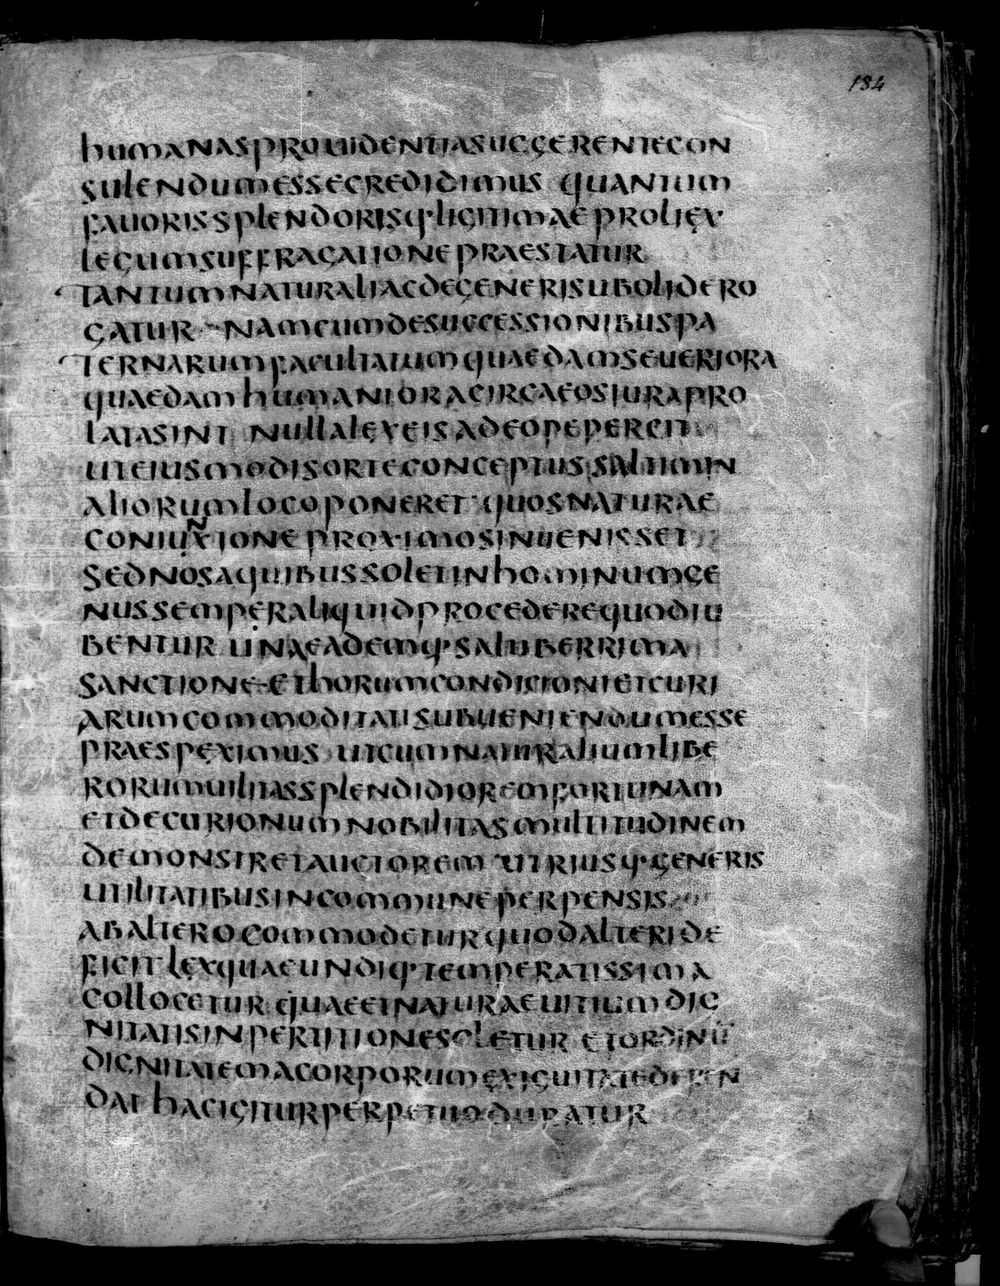 184
humanasprouidentiasuggerentecon
sulendumessecredidimus quantum
fauorissplendorisq·ligitimaeprolilex
legumsuffragationepraestatur
tantumnaturaliacdegenerisubolidero
gatur namcumdesuccessionibuspa
ternarumfacultatumquaedamseueriora
quaedamhumanioracircaeosiurapro
latasint nullalexeisadeopepercit
uteiusmodisorteconceptussaltimin
aliorumlocoponeret quosnaturae
coniunxioneproximosinuenisset
sednosaquibussoletinhominumge
nussemperaliquidprocederequodiu
bentur unaeademq·saluberrima
sanctione ethorumcondicionietcuri
arumcommoditatisubueniendumesse
praespeximus utcumnaturaliumlibe
rorumuilitassplendidioremfortunam
etdecurionumnobilitasmultitudinem
demonstretauctorem utriusq·generis
utilitatibusincommuneperpensis
abalterocommodeturquodalteride
ficit lexquaeundiq·temperatissima
collocetur quaeetnaturaeuitiumdig
nitatisinpertitionesoletur etordinu
dignitatemacorporumexiguitatedefen
dat hacigiturperpetuoduratur